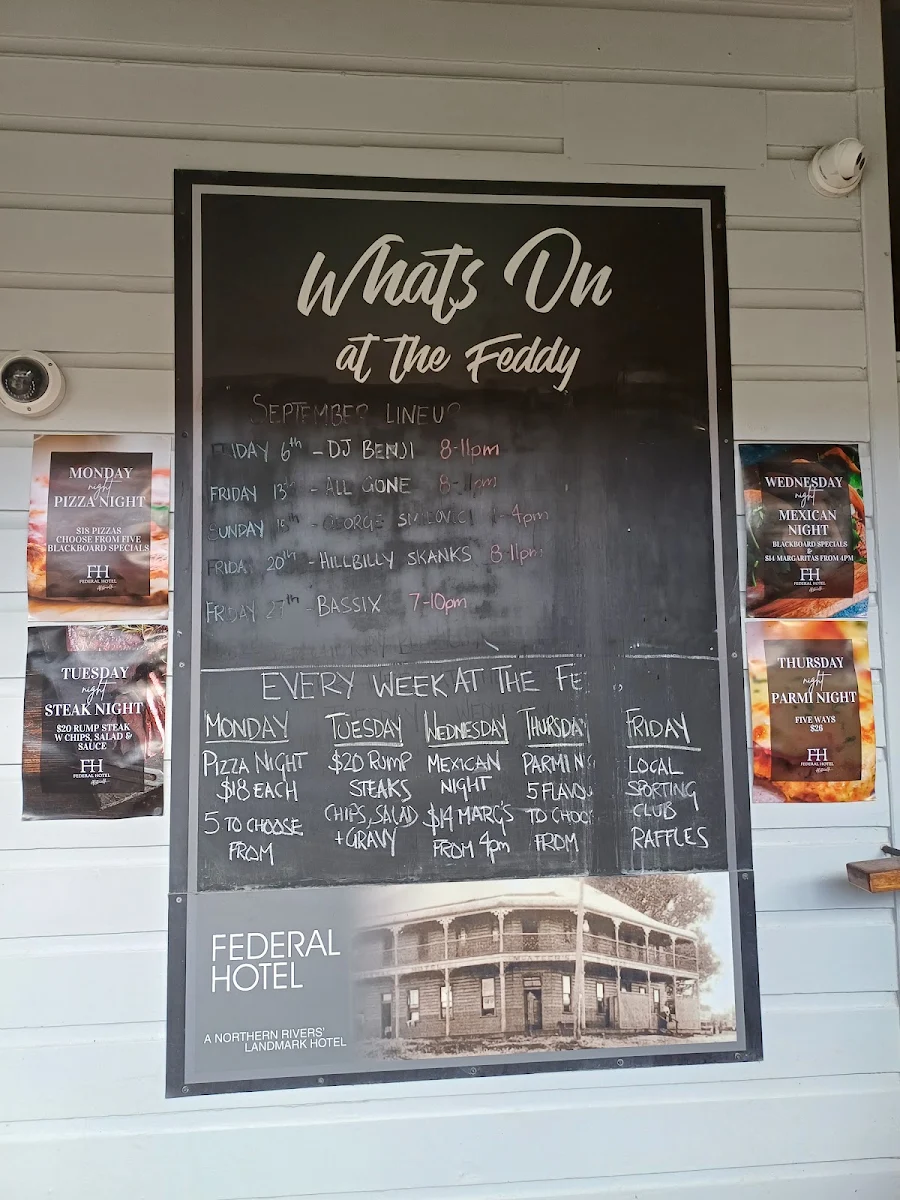 Whats On
at the Feddy
SEPTEMBER LINEUP
FRIDAY 6th - DJ BENJI 8-11pm
FRIDAY 13th - ALL GONE 8-11pm
SUNDAY 15th - GEORGE -4pm
FRIDAY 20th - HILLBILLY SKANKS 8-11pm
FRIDAY 27th - BASSIX 7-10pm
EVERY WEEK AT THE FE
MONDAY
PIZZA NIGHT
$18 EACH
5 TO CHOOSE
FROM
TUESDAY
$20 RUMP
STEAKS
CHIPS, SALAD
+ GRAVY
WEDNESDAY
MEXICAN
NIGHT
$14 MARG'S
FROM 4pm
THURSDAY
PARMI N
5 FLAVOU
TO CHOO
FROM
FRIDAY
LOCAL
SPORTING
CLUB
RAFFLES
FEDERAL
HOTEL
A NORTHERN RIVERS'
LANDMARK HOTEL
MONDAY
night
PIZZA NIGHT
$18 PIZZAS
CHOOSE FROM FIVE
BLACKBOARD SPECIALS
FH
FEDERAL HOTEL
TUESDAY
night
STEAK NIGHT
$20 RUMP STEAK
W CHIPS, SALAD &
SAUCE
FH
FEDERAL HOTEL
WEDNESDAY
night
MEXICAN
NIGHT
BLACKBOARD SPECIALS
&
$14 MARGARITAS FROM 4PM
FH
FEDERAL HOTEL
THURSDAY
night
PARMI NIGHT
FIVE WAYS
$26
FH
FEDERAL HOTEL